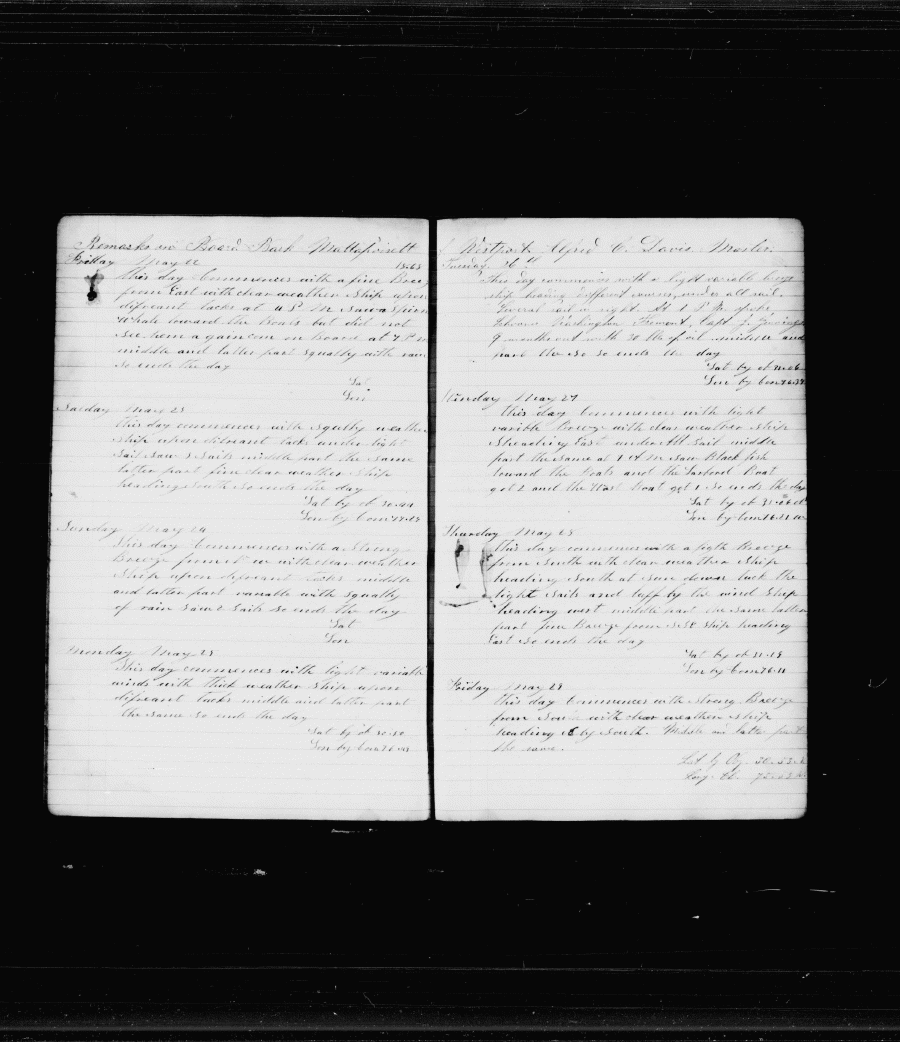 Remarks on Board Bark Mattapoisett
Friday May 22 1863
this day Commences with a fine Breez
from East with clear weather Ship upon
difreant tacks at 4 P M Saw a Spirm
Whale toward the Boats but did not
See hem a gain com on board at 7 P M
middle and latter part Squally with rain
So ends the day
Lat
Lon
Satday May 23
this day commences with Squlty weather
Ship upon difreant tacks under light
Sail Saw 2 Sails middle part the Same
latter part fine clear weather Ship
heading South So ends the day
Lat by ob 30.44
Lon by Crom
Sunday May 24
this day Commences with a Strong
Breeze from with clear weather
Ship upon difreant tacks middle
and latter part variable with Squalty
of rain Saw 2 Sails So ends the day
Lat
Lon
Monday May 25
this day commences with light variable
winds with thick weather Ship upon
difreant tacks middle and latter part
the Same So ends the day
Lat by ob 30.50
Lon by Crom
of Westport Alfred C. Davis Master.
Tuesday 26th
This day commences with a light variable breeze
ship heading different courses, under all sail.
Several sail in sight. At P M spoke
Schooner Washington Freeman, Capt. J.
9 months out with 30 bbls of oil middle and
part the So So ends the day
Lat by ob 31.06
Lon by Crom 76.34
Winday May 27
this day Commences with light
varible Breeze with clear weather Ship
Sheading East under All Sail middle
part the Same at 7 A M Saw Black fish
toward the Boats and the Larbord Boat
got 2 and the Wast Boat got 1 So ends the day
Lat by ob 31.06
Lon by Crom 76.21
Thursday May 28
this day commences with a ligth Breeze
from South with clear weather Ship
heading South at Sun down tack the
light Sails and luff by the wind Ship
heading west middle part the Same latter
part fine Breeze from SSE Ship heading
East So ends the day
Lat by ob 31.19
Lon by Crom 76.11
Friday May 29
this day Commences with Strong Breeze
from South with clear weather Ship
heading E by South. Middle and latter part
the same.
Lat by Ob. 30.53
Long. 75.02